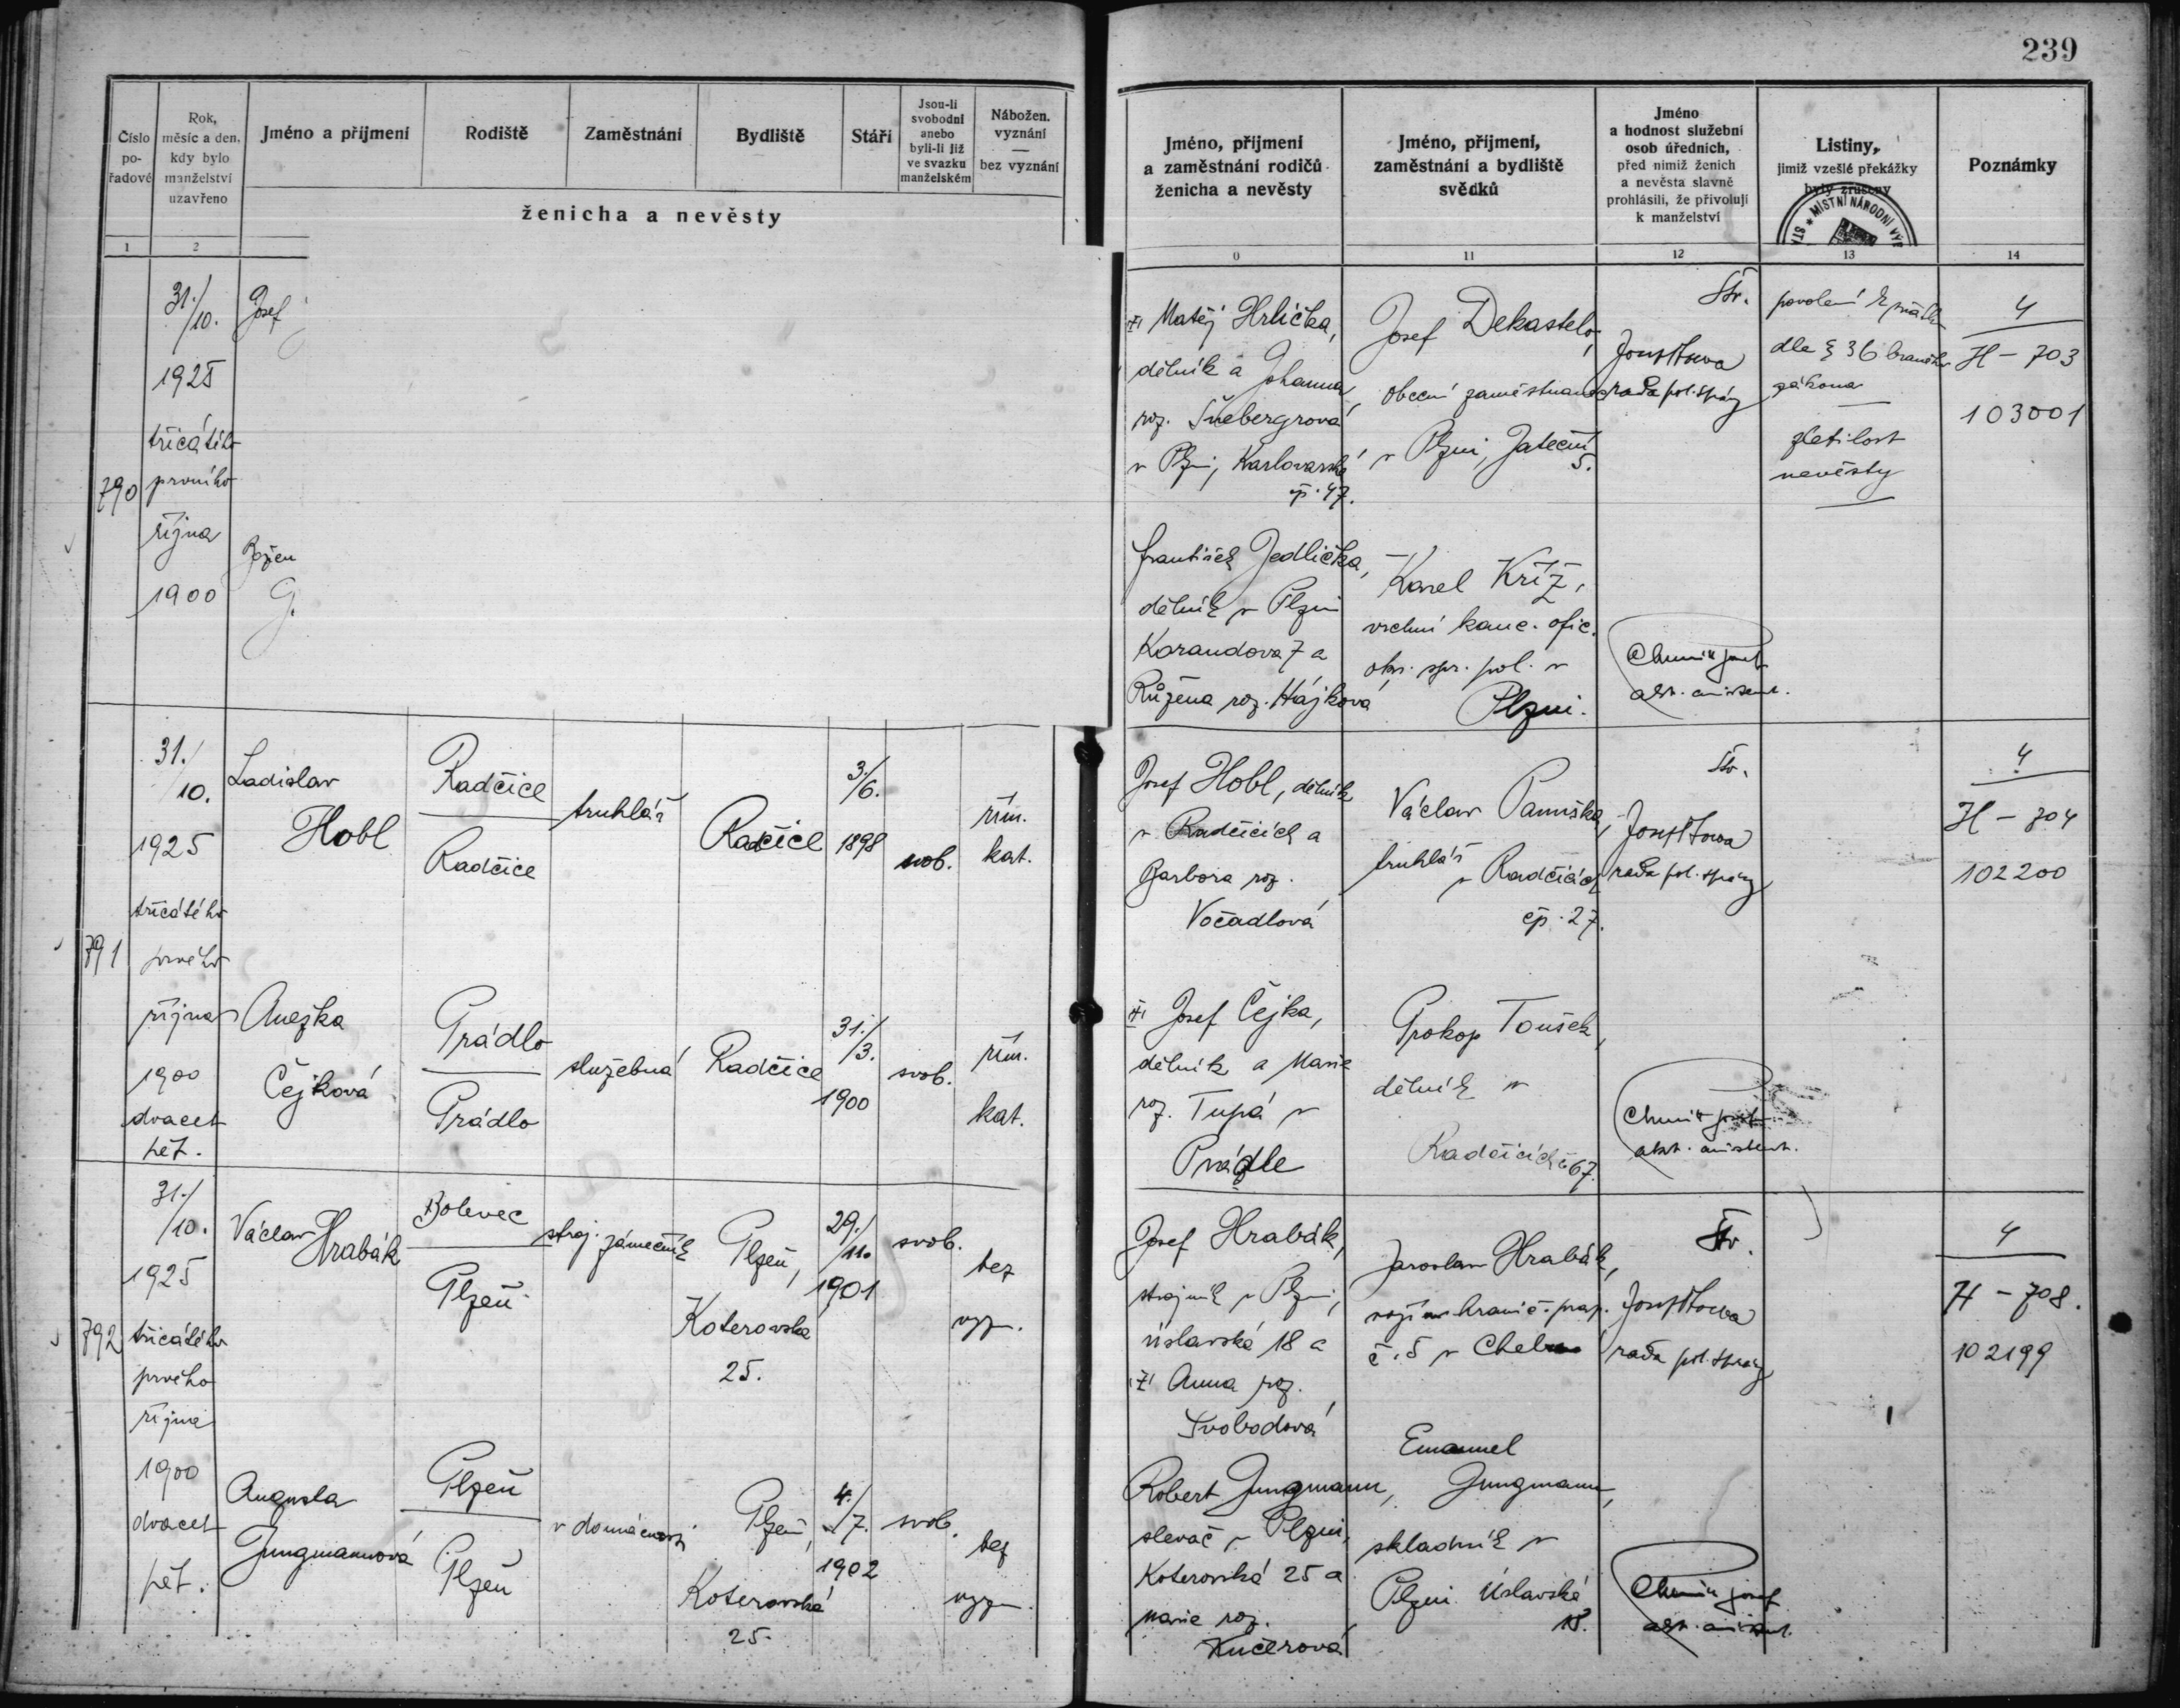 239
Číslo
po-
řadové
Rok,
měsíc a den,
kdy bylo
manželství
uzavřeno
Jméno a příjmení
Rodiště
Zaměstnání
Bydliště
Stáří
Jsou-li
svobodni
anebo
byli-li již
ve svazku
manželském
Nábožen.
vyznání
—
bez vyznání
ženicha a nevěsty
1
2
Jméno, příjmení
a zaměstnání rodičů
ženicha a nevěsty
Jméno, příjmení,
zaměstnání a bydliště
svědků
Jméno
a hodnost služební
osob úředních,
před nimiž ženich
a nevěsta slavně
prohlásili, že přivolují
k manželství
Listiny,
jimiž vzešlé překážky
byly zrušeny
MÍSTNÍ NÁRODNÍ VÝ
Poznámky
0
11
12
13
14
790
31./
/10.
1925
třicátého
prvního
října
1900
Josef
Matěj Hrlička,
dělník a Johanna
roz. Šnebergrová
v Plzni, Karlovarská
čp. 47.
František Jedlička,
dělník v Plzni
Korandova 7 a
Růžena roz. Hájková
Josef Dekastelo,
obecní zaměstnanec
v Plzni, Jateční
5.
Karel Kříž,
vrchní kanc. ofic.
okr. spr. pol. v
Plzni.
rada pol. správy
povolení k sňatku
dle § 36 branného
zákona
zletilost
nevěsty
4
H - 703
103001
791
31./
/10.
1925
třicátého
prvého
října
1900
dvacet
pět.
Ladislav
Hobl
Radčice
Radčice
truhlář
Radčice
3./
/6.
1898
svob.
řím.
kat.
Anežka
Čejková
Prádlo
Prádlo
služebná
Radčice
31./
/3.
1900
svob.
řím.
kat.
Josef Hobl, dělník
v Radčicích a
Barbora roz.
Vočadlová
Josef Čejka,
dělník a Marie
roz. Tupá v
Prádle
Václav Pamiška,
truhlář
v Radčicích
čp. 27.
Prokop Toušek,
dělník v
Radčicích č 67.
rada pol. správy
4
H - 704
102200
792
31./
/10.
1925
třicátého
prvého
října
1900
dvacet
pět.
Václav
Hrabák
Bolevec
Plzeň
stroj. zámečník
Plzeň,
Koterovská
25.
29./
/11.
1901
svob.
bez
vyzn.
Augusta
Jungmannová
Plzeň
Plzeň
v domácnosti
Plzeň,
Koterovská
25.
4./
/7.
1902
svob.
bez
vyzn.
Josef Hrabák,
strojník v Plzni,
Úslavská 18 a
Anna roz.
Svobodová
Robert Jungmann,
slevač v Plzni,
Koterovská 25 a
Marie roz.
Kučerová
Jaroslav Hrabák,
vojín hranič. prap.
č. 5 v Chebu
Emanuel
Jungmann,
skladník v
Plzni Úslavská
18.
rada pol. správy
4
H - 708.
102199